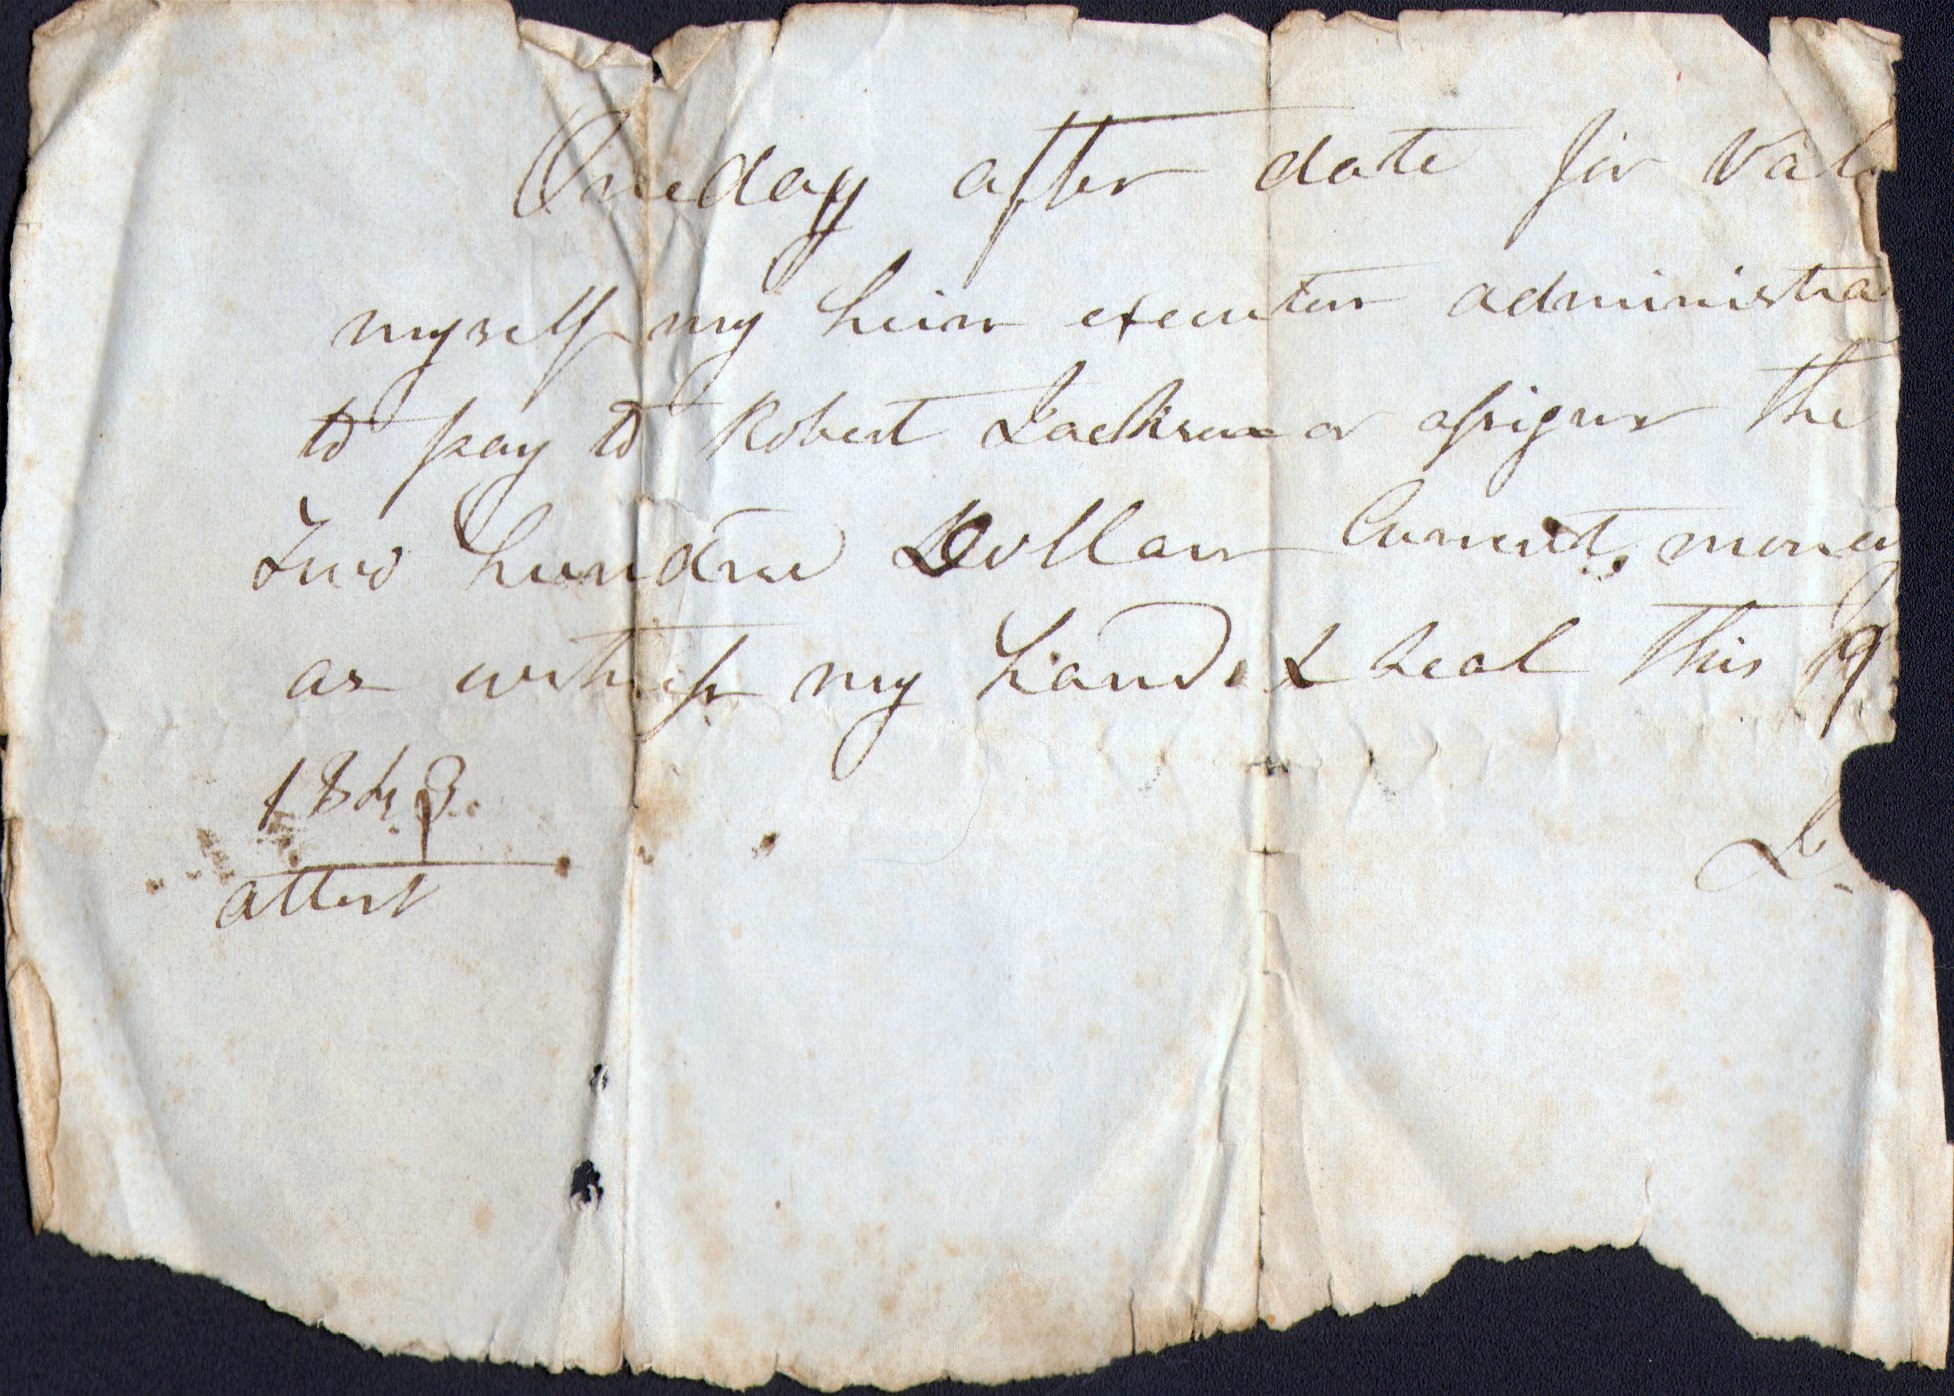 One day after date for Valu
myself my heirs executors administra
to pay to Robert Jackson or assigns the
Two hundred Dollars Current money
as witness my hand & seal this 19
attest